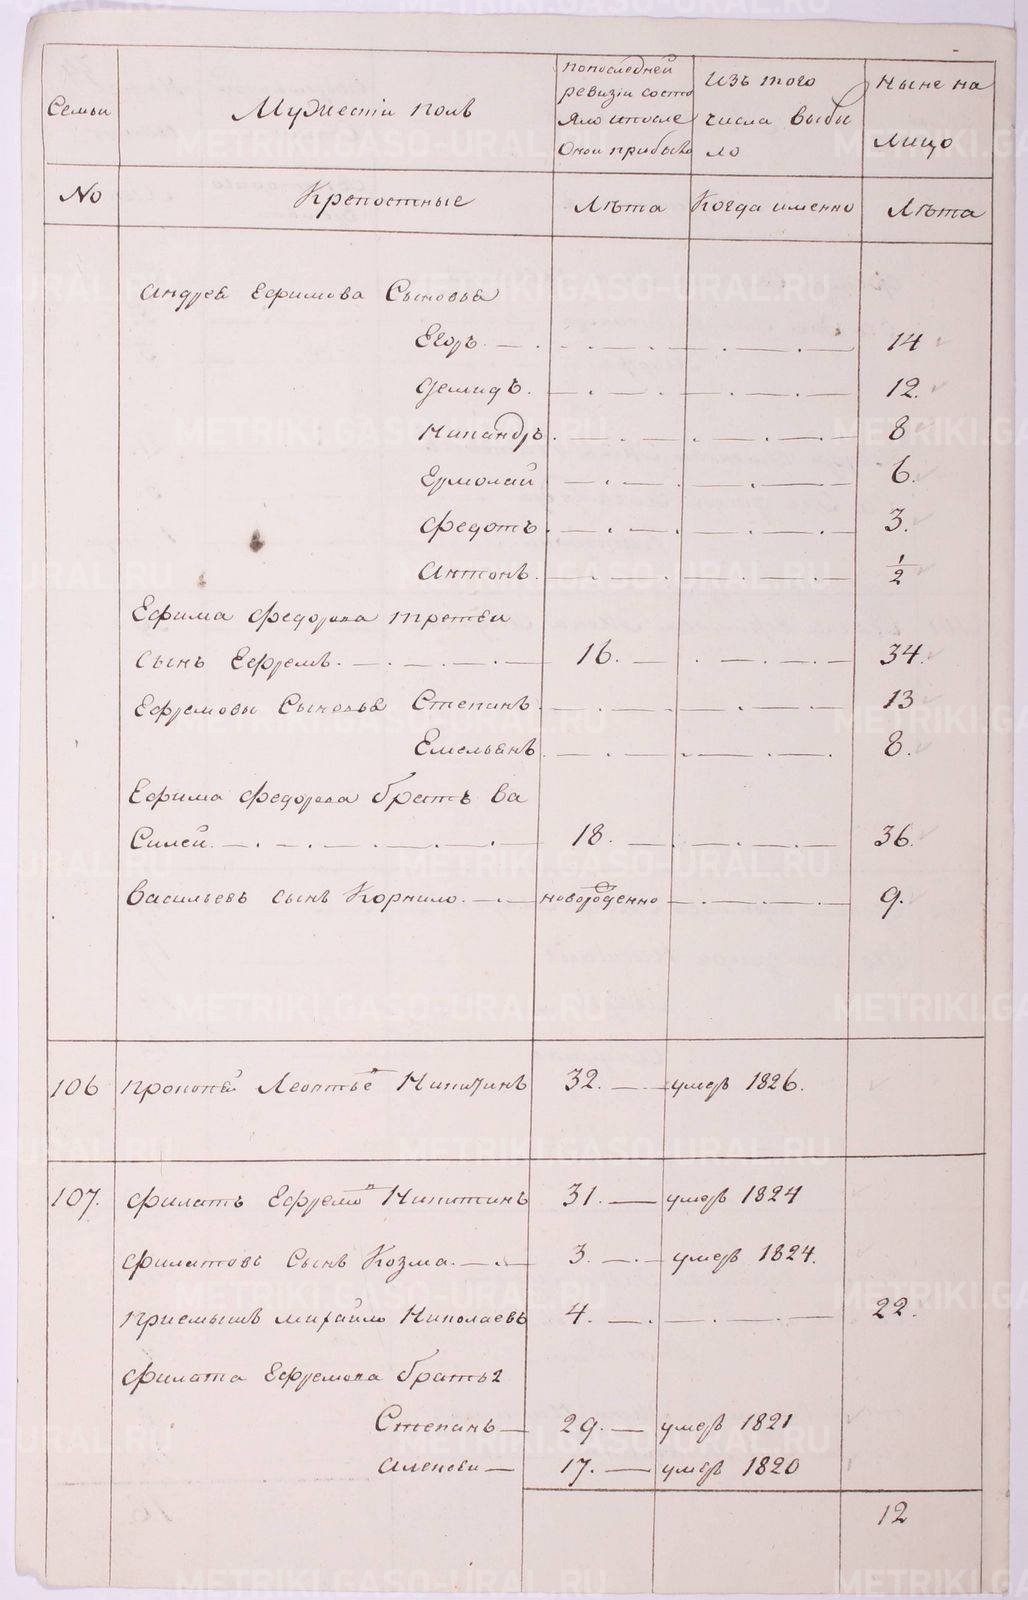 Семьи
Мужеска полъ
Попоследней ревизiи состо яло ипосле Онои прибыло
Изъ того числа выбы ло
Ныне на лицо
No
Крепостные
Лѣта
Когда именно
Лѣта
Андрея Ефимова Сыновья
Егоръ. 14
Демидъ. 12.
Никандръ. 8
Ермолай 6.
Федотъ. 3.
Антонъ. 1/2
Ефима Федорова третьи
сынъ Ефремъ. 16. 34.
Ефремовы Сыновья Степанъ. 13
Емельянъ 8.
Ефима Федорова братъ Ва
Силей. 18. 36.
Васильевъ сынъ Корнило. новорожденно 9.
106 Прокопей Леонтьевъ Никитинъ 32. умеръ 1826.
107. Филатъ Ефремовъ Никитинъ 31. умеръ 1824
Филатовъ Сынъ Козма. 3. умеръ 1824.
Приемышъ Михайло Николаевъ 4. 22.
Филата Ефремова братья
Степанъ 29. умеръ 1821
Алексеи 17. умеръ 1820
12
METRIKI.GASO-URAL.RU